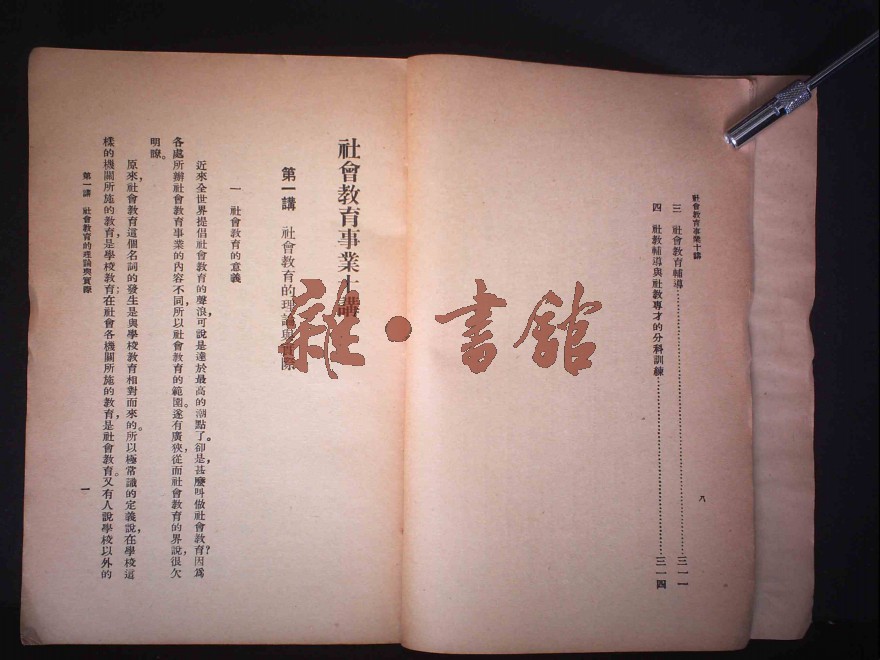 社會敎育事業十講
三　社會敎育輔導……三一一
四　社敎輔導與社敎專才的分科訓練……三一四
八
社會敎育事業十講
第一講　社會敎育的理論與實際
一　社會敎育的意義
近來全世界提倡社會敎育的聲浪，可說是達於最高的潮點了。卻是甚麼叫做社會敎育？因爲
各處所辦社會敎育事業的內容不同，所以社會敎育的範圍。遂有廣狹，從而社會敎育的界說，很欠
明瞭。
原來，社會敎育這個名詞的發生是與學校敎育相對而來的。所以極常識的定義說在學校這
樣的機關所施的敎育，是學校敎育；在社會各機關所施的敎育，是社會敎育。又有人說學校以外的
第一講　社會敎育的理論與實際
一
雜·書館